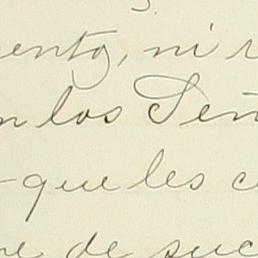 ento, ni
n los Señ
que les c
re de suc